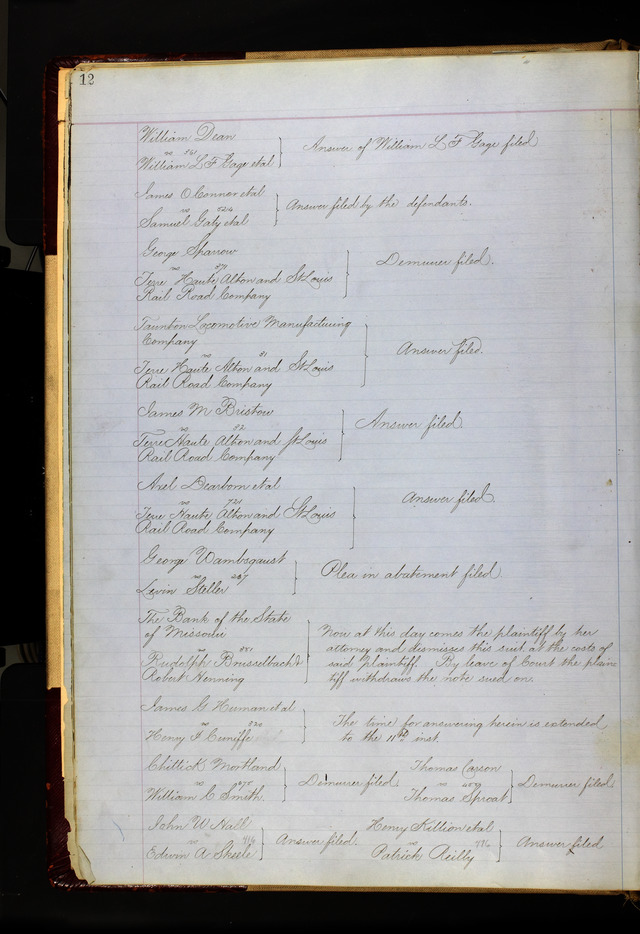 12
William Dean
vs 561
William L F Gage et al
Answer of William L F Gage filed
James O Connor et al
vs 624
Samuel Gaty et al
Answer filed by the defendants.
George Sparrow
vs
Terre Haute Alton and St Louis
Rail Road Company
Demurrer filed.
Taunton Locomotive Manufacturing
Company
vs 81
Terre Haute Alton and St Louis
Rail Road Company
Answer filed.
James M Bristow
vs 82
Terre Haute Alton and St Louis
Rail Road Company
Answer filed
Axel Dearborn et al
vs 721
Terre Haute Alton and St Louis
Rail Road Company
Answer filed.
George Wambsgaust
vs 287
Levin Steller
Plea in abatement filed
The Bank of the State
of Missouri
vs
Rudolph Brusselbach &
Robert Henning
Now at this day comes the plaintiff by her
attorney and dismisses this suit at the costs of
said plaintiff. By leave of Court the plain
tiff withdraws the note sued on.
James G Human et al
vs 320
Henry F Cuniffe
The time for answering herein is extended
to the 11th inst.
Chittick Mortland
vs 875
William C Smith
Demurrer filed
Thomas Carson
vs 459
Thomas Sproat
Demurrer filed
John W Nall
vs 414
Edwin A Skeele
Answer filed.
Henry Killion et al
vs 716
Patrick Reilly
Answer filed